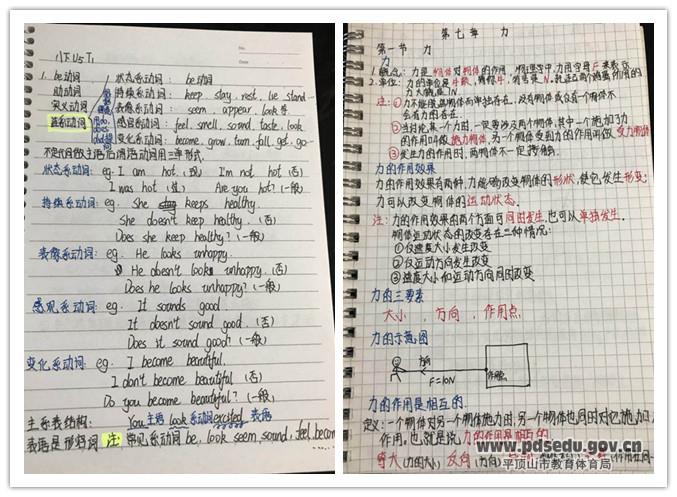 八下U5T1
No.
Date
1. be动词
助动词
实义动词
连系动词
状态系动词: be动词
持续系动词: keep, stay, rest, lie, stand…
表像系动词: seem, appear, look等
感官系动词: feel, smell, sound, taste, look
变化系动词: become, grow, turn, fall, get, go…
状态系动词: eg. I am hot. (现) I'm not hot. (否)
I was hot (过) Are you hot? (一般)
持续系动词: eg. She keeps healthy.
She doesn't keep healthy. (否)
Does she keep healthy? (一般)
表像系动词: eg. He looks unhappy.
He doesn't look unhappy. (否)
Does he look unhappy? (一般)
感观系动词: eg. It sounds good.
It doesn't sound good. (否)
Does it sound good? (一般)
变化系动词: eg. I become beautiful.
I don't become beautiful (否)
Do you become beautiful? (一般)
主系表结构: You主语 look系动词 excited. 表语
表语是形容词 注: 常见系动词be, look, seem, sound, feel, become
第七章 力
第一节 力
力
1. 概念: 力是物体对物体的作用
注: ①力不能脱离物体而单独存在, 没有物体或只有一个物体不
会有力的存在.
②当讨论某一个力时, 一定要涉及两个物体, 其中一个施加了力
的作用叫做施力物体, 另一个物体受到力的作用叫做受力物体
③发生力的作用时, 两物体不一定接触.
力的作用效果
力的作用效果有两种, 力能够改变物体的形状, 使它发生形变;
力可以改变物体的运动状态.
注: 力的作用效果的两个方面可同时发生, 也可以单独发生.
物体运动状态的改变存在三种情况:
①仅速度大小发生改变
②仅运动方向发生改变
③速度大小和运动方向同时改变
力的三要素
大小, 方向, 作用点
力的示意图
方向
F=10N
作用点
力的作用是相互的
定义: 一个物体对另一个物体施力时, 另一个物体也同时对它施加力
作用, 也就是说, 力的作用是相互的
等大 (力的大小) 反向 (方向)
www.pdsedu.gov.cn
平顶山市教育体育局